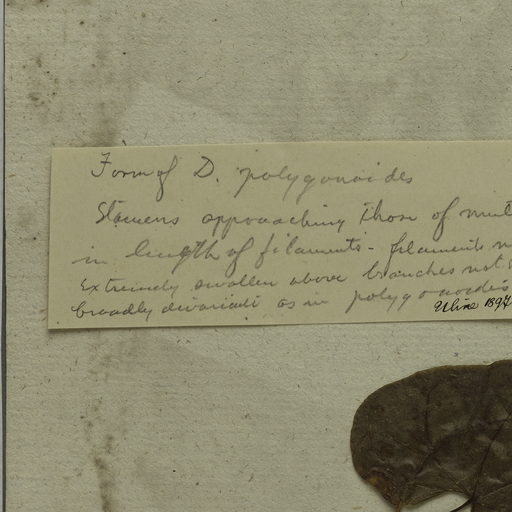 Form of D. polygonoides
Stamens approaching those of mult
in length of filaments - filaments n
extremely swollen above branches not s
broadly divaricate as in polygonoides
Uline 1897